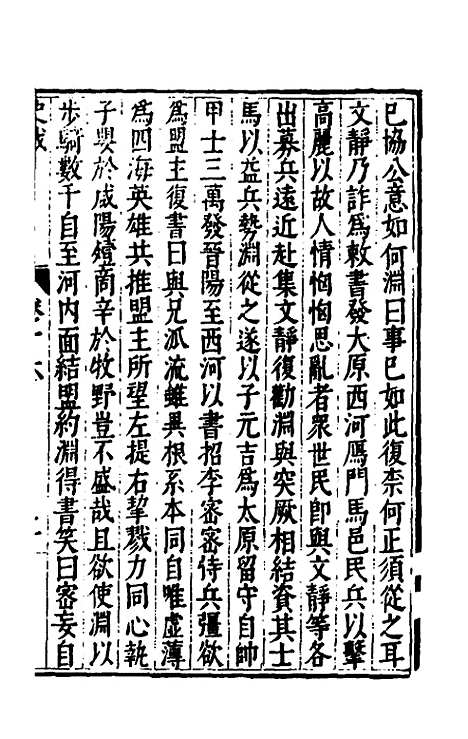 已協公意如何淵曰事已如此復柰何正須從之耳
文靜乃詐爲敕書發太原西河鴈門馬邑民兵以擊
高麗以故人情恟恟思亂者衆世民卽與文靜等各
出募兵遠近赴集文靜復勸淵與突厥相結資其士
馬以益兵勢淵從之遂以子元吉爲太原留守自帥
甲士三萬發晉陽至西河以書招李密密恃兵彊欲
爲盟主復書曰與兄派流雖異根系本同自唯虛薄
爲四海英雄共推盟主所望左提右挈戮力同心執
子嬰於咸陽殪商辛於牧野豈不盛哉且欲使淵以
步騎數千自至河内面結盟約淵得書笑曰密妄自
卷十六